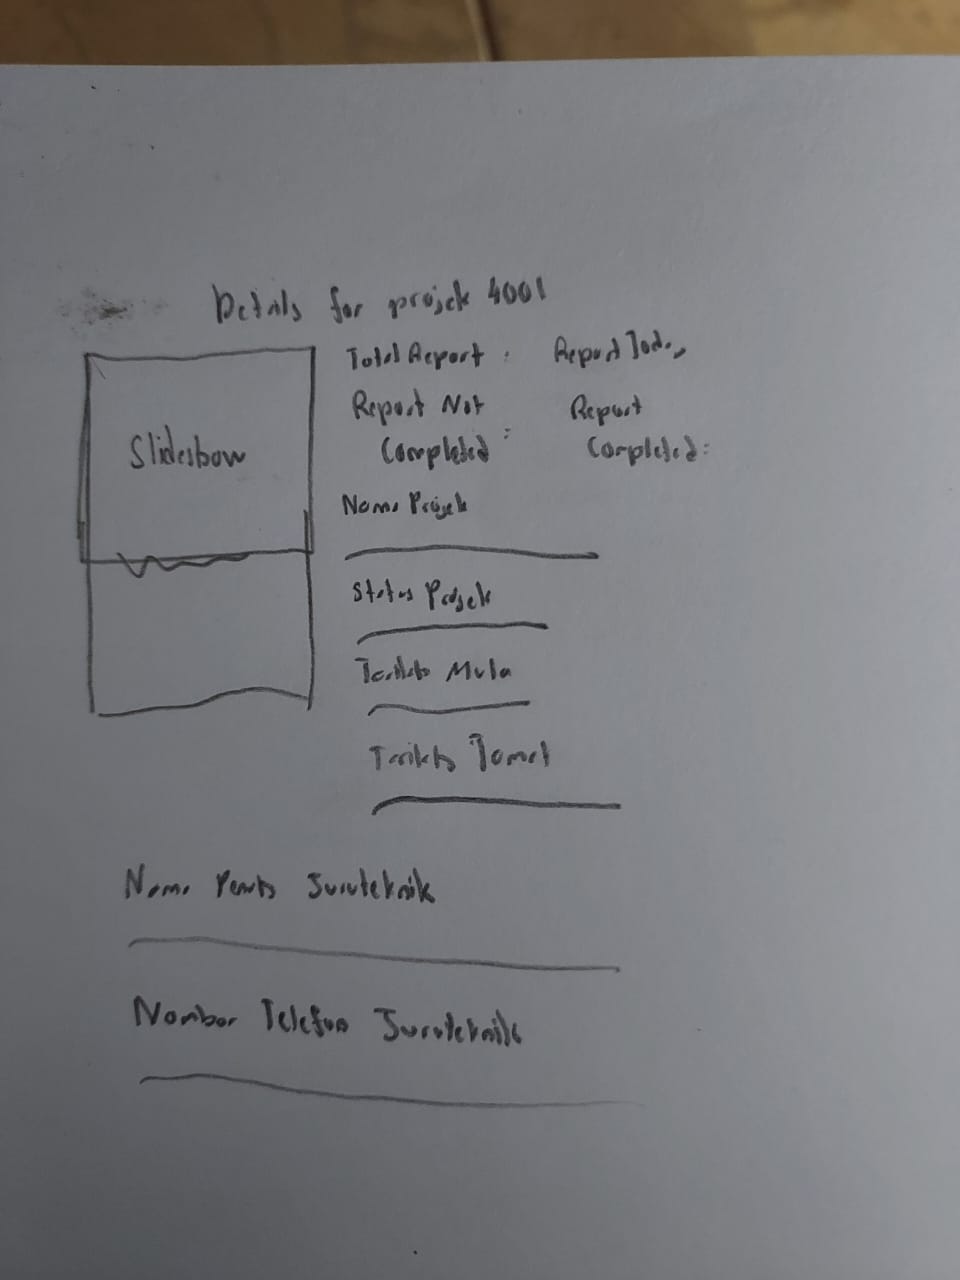 Details for projek 4001
Slideshow
Total Report : Report Today
Report Not Completed :
Report Completed :
Nama Projek
Status Projek
Tarikh Mula
Tarikh Tamat
Nama Penuh Juruteknik
Nombor Telefon Juruteknik